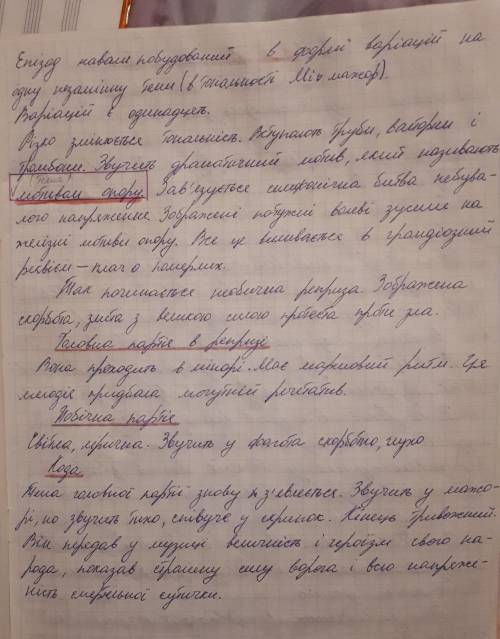 Епізод навали побудований в формі варіацій на
одну незмінну тему (в тональності Мі♭ мажор).
Варіацій є одинадцять.
Різко змінюється тональність. Вступають труби, валторни і
тромбони. Звучить драматичний мотив, який називають
(тема)
мотивом опору. Зав'язується симфонічна битва небува-
лого напруження. Зображені потужні волеві зусилля на
желізні мотиви опору. Все це виливається в грандіозний
реквієм — плач о померлих.
Так починається незвична реприза. Зображена
скорбота, злита з великою силою протеста проти зла.
Головна партія в репризе
Вона проходить в мінорі. Має маршовий ритм. Ця
мелодія придбала могутній речетатив.
Побічна партія
Світла, лірична. Звучить у фагота скорбно, глухо
Кода
Тема головної партії знову з'являється. Звучить у мажо-
рі, но звучить тихо, співуче у скрипок. Кінець тривожний.
Він передав у музиці величність і героїзм свого на-
рода, показав страшну силу ворога і всю напряже-
ність смертельної сутички.